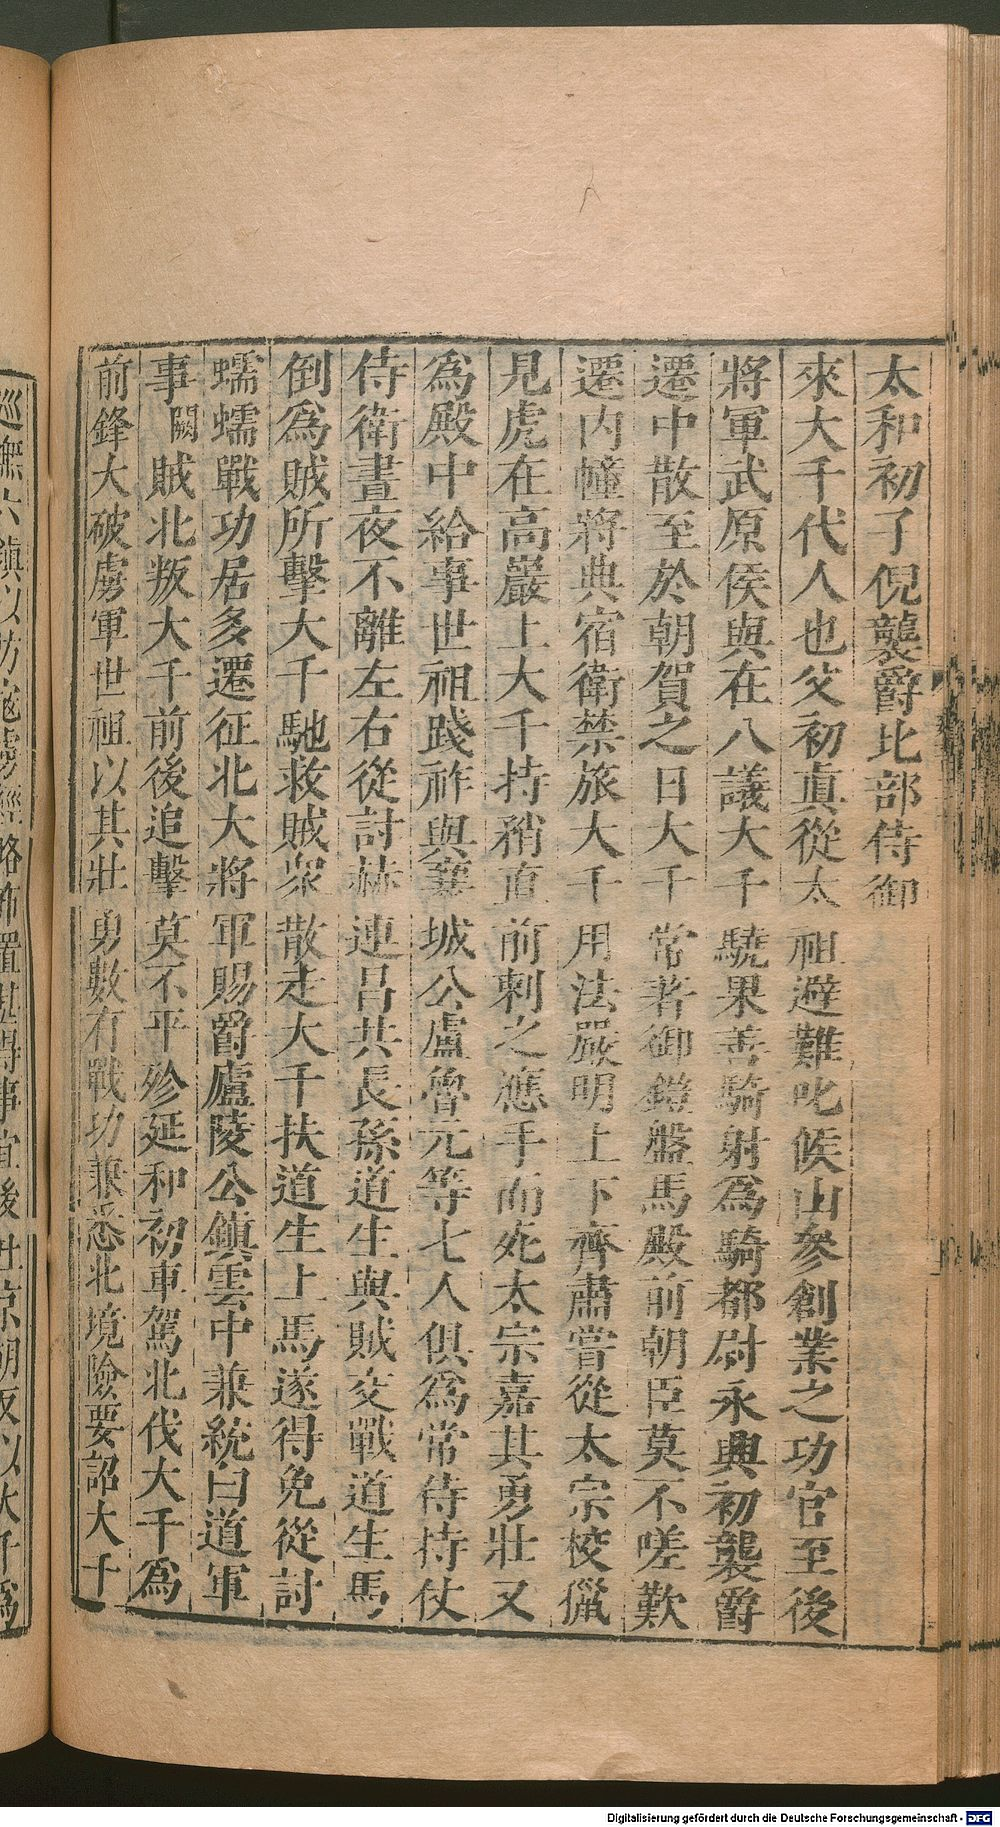 太和初子倪襲爵比部侍御
來大千代人也父初真從太祖避難叱候山參創業之功官至後
將軍武原侯與在八議大千驍果善騎射為騎都尉永興初襲爵
遷中散至於朝賀之日大千常著御鎧盤馬殿前朝臣莫不嗟歎
遷內幢將典宿衛禁旅大千用法嚴明上下齊肅嘗從太宗校獵
見虎在高巖上大千持矟直前刺之應手而死太宗嘉其勇壯又
為殿中給事世祖踐祚與襄城公盧魯元等七人俱為常侍持仗
侍衛晝夜不離左右從討赫連昌共長孫道生與賊交戰道生馬
倒為賊所擊大千馳救賊眾散走大千扶道生上馬遂得免從討
蠕蠕戰功居多遷征北大將軍賜爵廬陵公鎮雲中兼統白道軍
事闕賊北叛大千前後追擊莫不平殄延和初車駕北伐大千為
前鋒大破虜軍世祖以其壯勇數有戰功兼悉北境險要詔大千
巡撫六鎮以防寇虜經略布置甚得事宜後
Digitalisierung gefördert durch die Deutsche Forschungsgemeinschaft - DFG